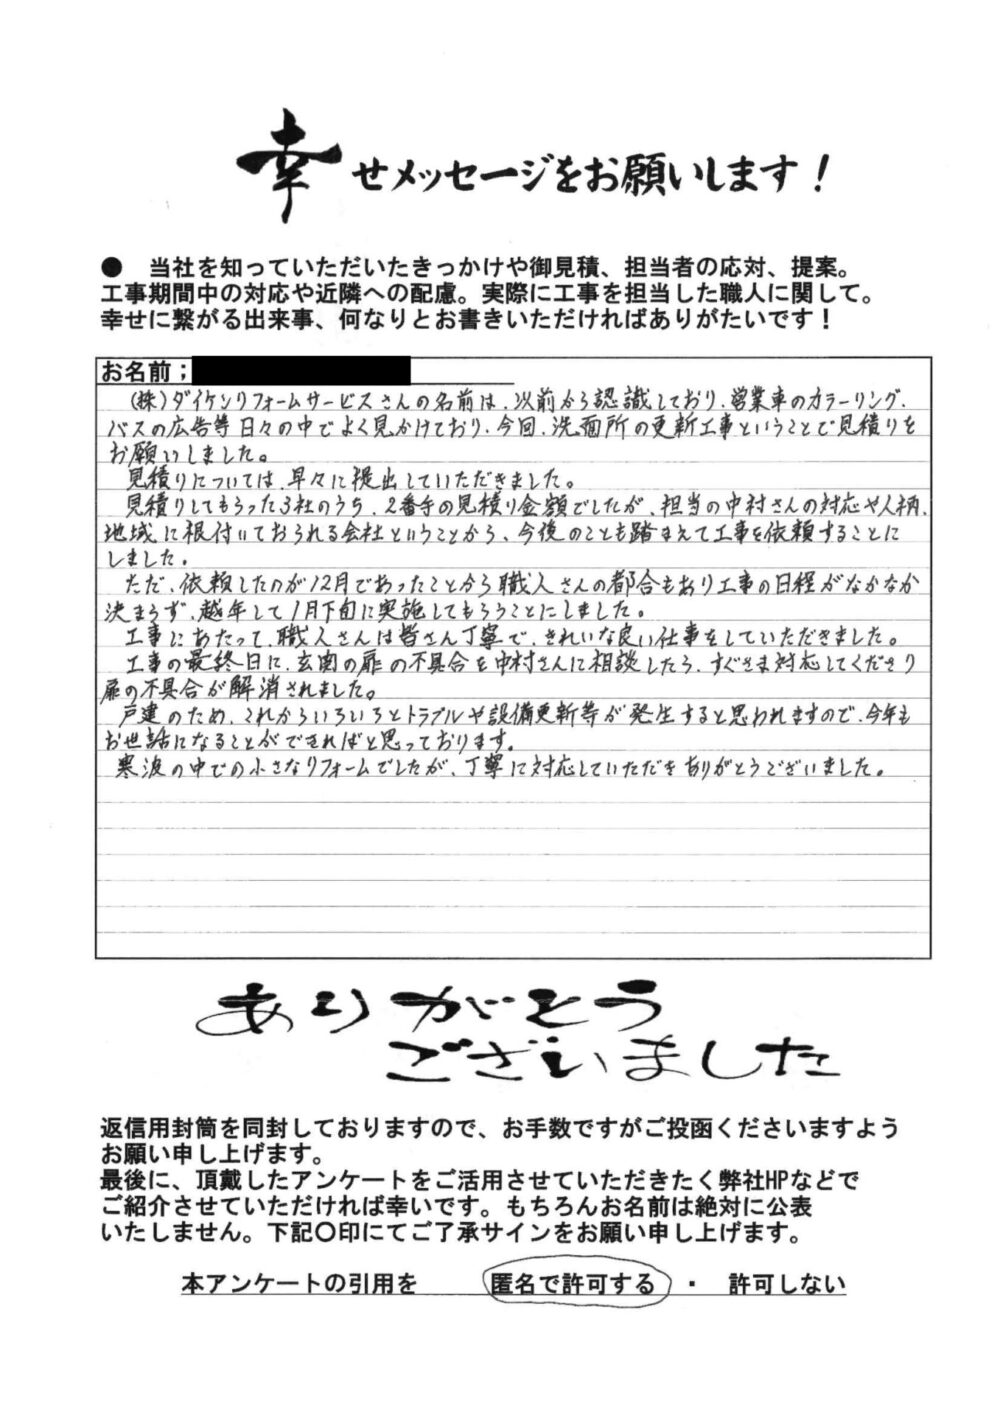 幸せメッセージをお願いします！
●　当社を知っていただいたきっかけや御見積、担当者の応対、提案。
工事期間中の対応や近隣への配慮。実際に工事を担当した職人に関して。
幸せに繋がる出来事、何なりとお書きいただければありがたいです！
お名前；
(株)ダイケンリフォームサービスさんの名前は、以前から認識しており、営業車のカラーリング、
バスの広告等日々の中でよく見かけており、今回、洗面所の更新工事ということで見積りを
お願いしました。
見積りについては、早々に提出していただきました。
見積りしてもらった3社のうち、2番手の見積り金額でしたが、担当の中村さんの対応や人柄、
地域に根付いておられる会社ということから、今後のことも踏まえて工事を依頼することに
しました。
ただ、依頼したのが12月であったことから職人さんの都合もあり工事の日程がなかなか
決まらず、越年して1月下旬に実施してもらうことにしました。
工事にあたって、職人さんは皆さん丁寧で、きれいな良い仕事をしていただきました。
工事の最終日に、玄関の扉の不具合を中村さんに相談したら、すぐさま対応してくださり
扉の不具合が解消されました。
戸建のため、これからいろいろとトラブルや設備更新等が発生すると思われますので、今年も
お世話になることができればと思っております。
寒波の中での小さなリフォームでしたが、丁寧に対応していただきありがとうございました。
ありがとう
ございました
返信用封筒を同封しておりますので、お手数ですがご投函くださいますよう
お願い申し上げます。
最後に、頂戴したアンケートをご活用させていただきたく弊社HPなどで
ご紹介させていただければ幸いです。もちろんお名前は絶対に公表
いたしません。下記〇印にてご了承サインをお願い申し上げます。
本アンケートの引用を　匿名で許可する　・　許可しない